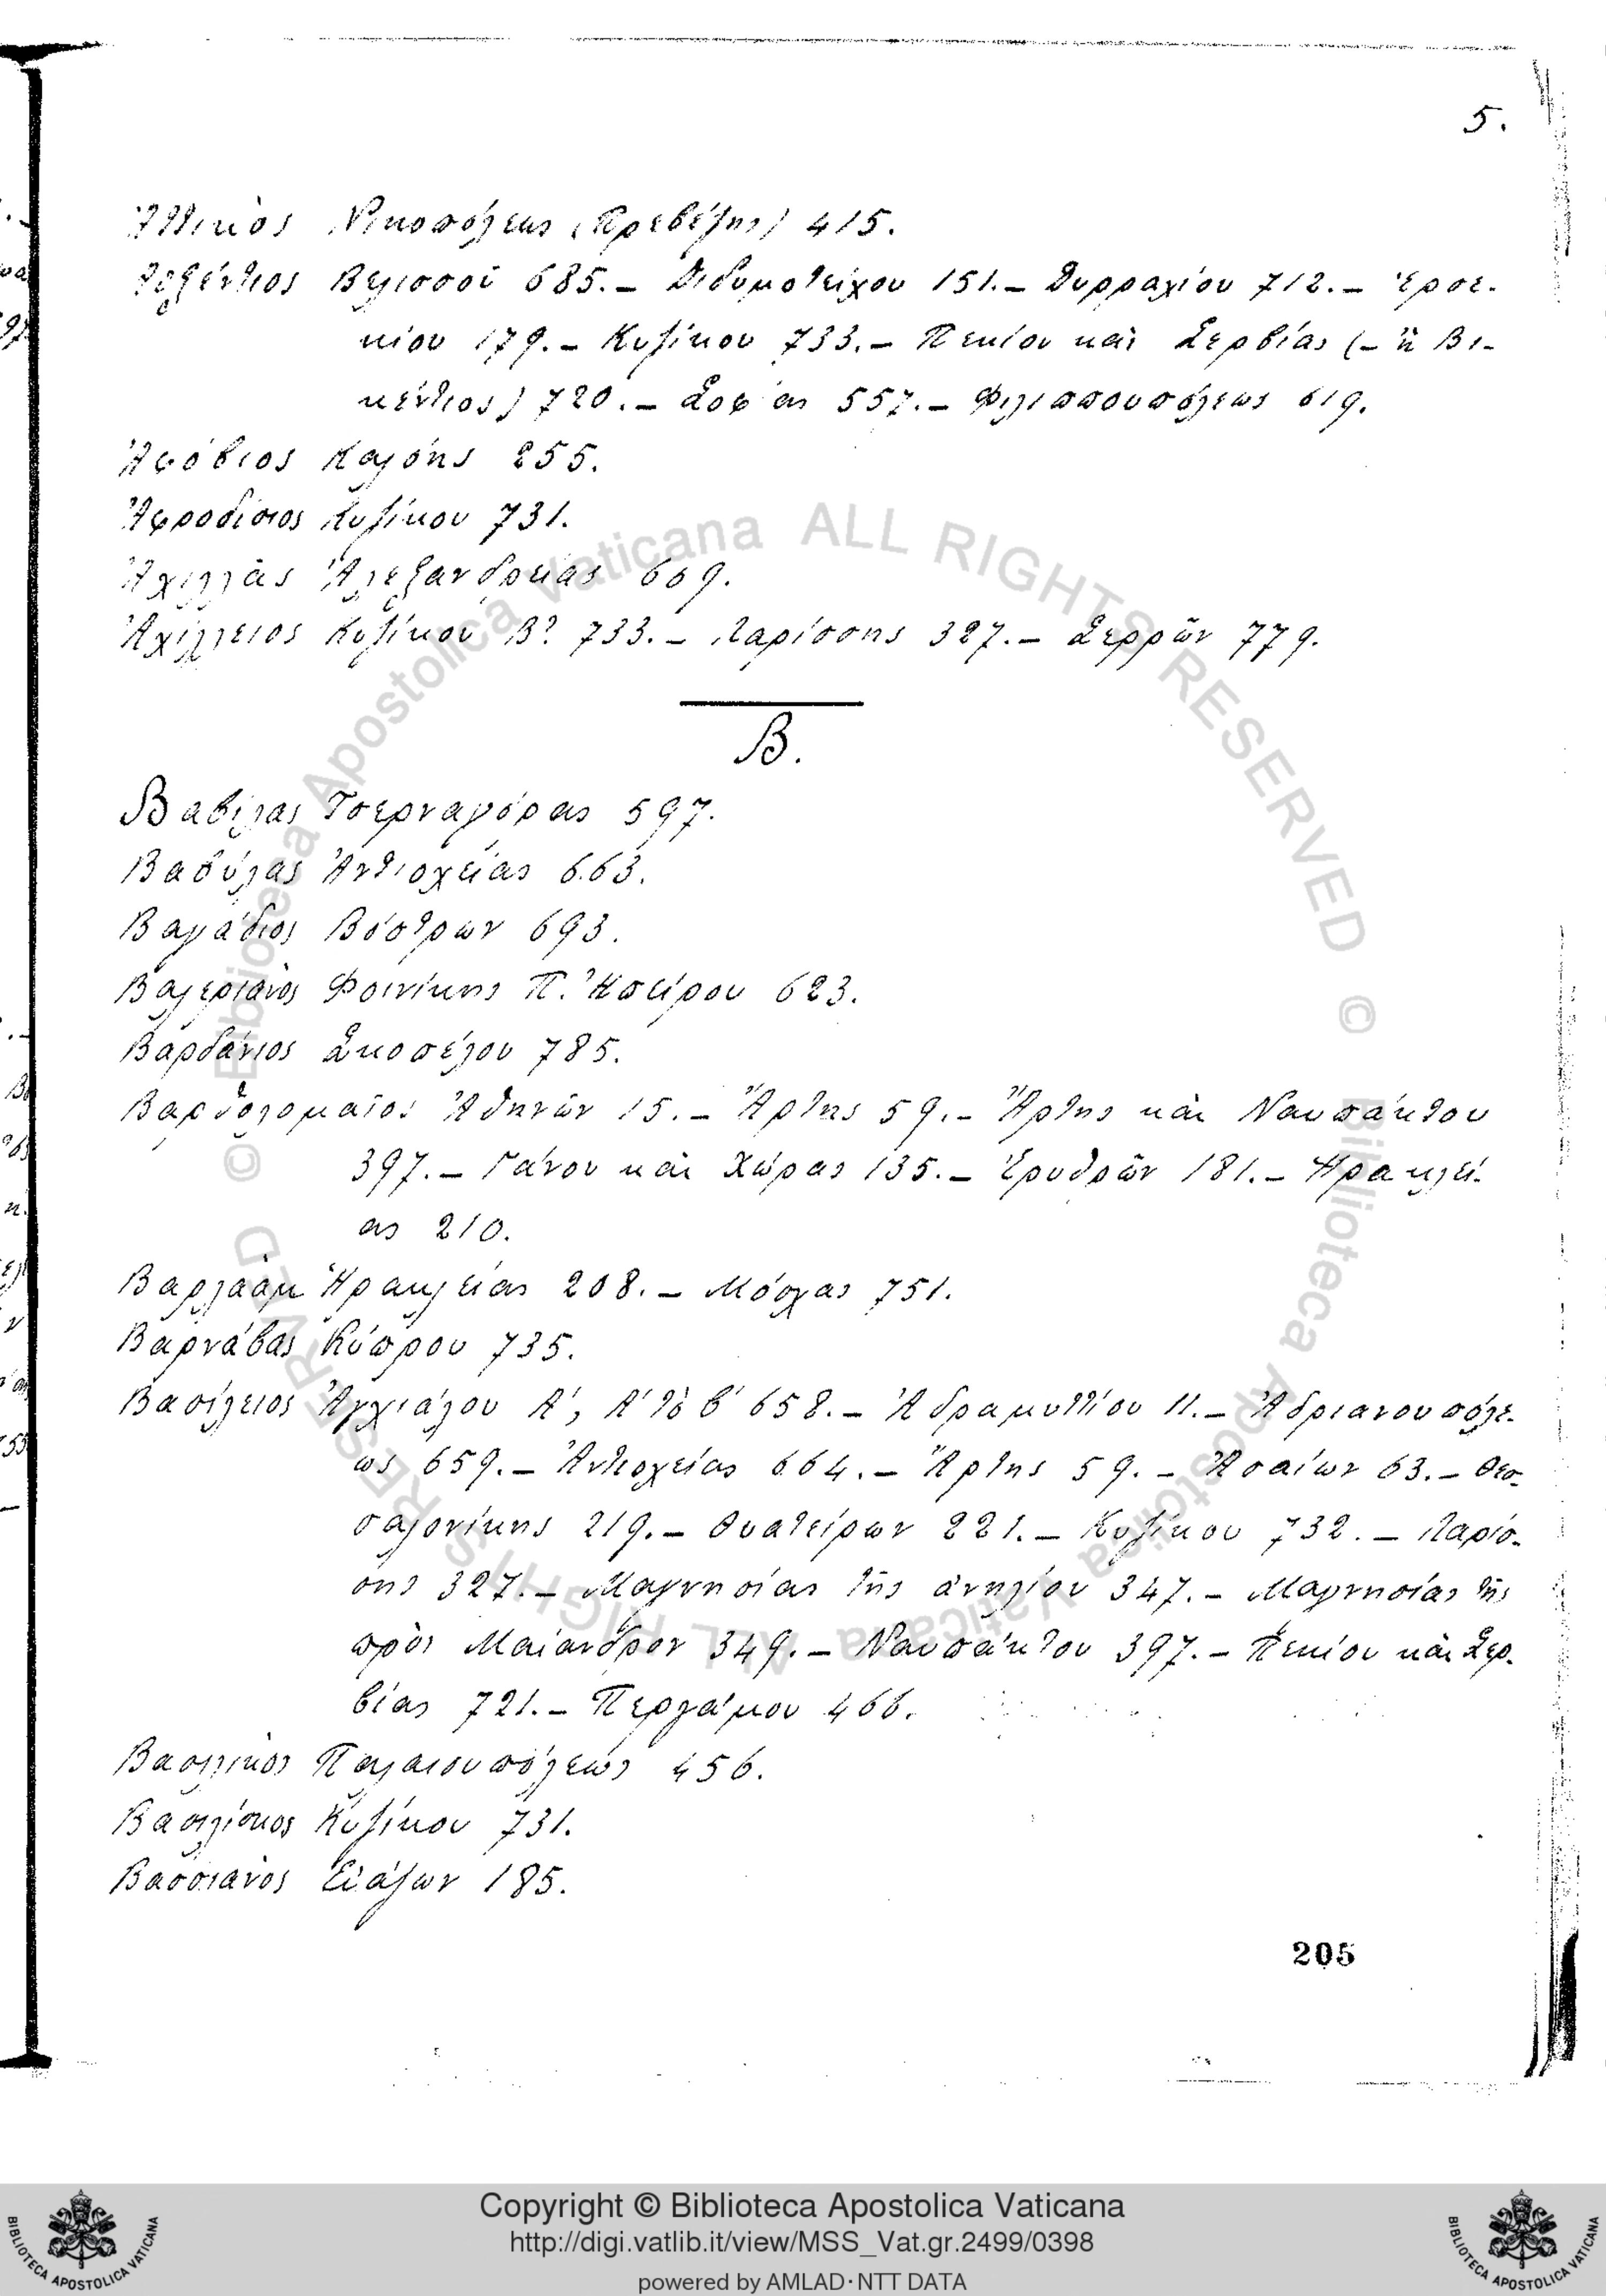 5.
Ἀττικὸς Νικοπόλεως (Πρεβέζης) 415.
Αὐξέντιος Βελισσοῦ 685.– Διδυμοτείχου 151.– Δυρραχίου 712.– Ἐρσε-
κίου 179.– Κυζίκου 733.– Πεκίου καὶ Σερβίας (– ἢ Βι-
κέντιος) 720.– Σοφίας 557.– Φιλιππουπόλεως 619.
Ἀφόβιος Καλόης 255.
Ἀφροδίσιος Κυζίκου 731.
Ἀχιλλᾶς Ἀλεξανδρείας 669.
Ἀχίλλειος Κυζίκου Β? 733.– Λαρίσσης 327.– Σερρῶν 779.
Β.
Βαβίλας Τσερναγόρας 597.
Βαβύλας Ἀντιοχείας 663.
Βαγάδιος Βόστρων 693.
Βαλεριανὸς Φοινίκης Π. Ἠπείρου 623.
Βαρδάνιος Σκοπέλου 785.
Βαρθολομαῖος Ἀθηνῶν 15.– Ἄρτης 59.– Ἄρτης καὶ Ναυπάκτου
397.– Γάνου καὶ Χώρας 135.– Ἐρυθρῶν 181.– Ἡρακλεί-
ας 210.
Βαρλαὰμ Ἡρακλείας 208.– Μόσχας 751.
Βαρνάβας Κύπρου 735.
Βασίλειος Ἀγχιάλου Α΄, Α΄ τὸ β΄ 658.– Ἀδραμυττίου 11.– Ἀδριανουπόλε-
ως 659.– Ἀντιοχείας 664.– Ἄρτης 59.– Ἀσαίων 63.– Θεσ-
σαλονίκης 219.– Θυατείρων 221.– Κυζίκου 732.– Λαρίσ-
σης 327.– Μαγνησίας τῆς ἀνηλίου 347.– Μαγνησίας τῆς
πρὸς Μαίανδρον 349.– Ναυπάκτου 397.– Πεκίου καὶ Σερ-
βίας 721.– Περγάμου 466.
Βασιλικὸς Παλαιουπόλεως 456.
Βασιλίσκος Κυζίκου 731.
Βασσιανὸς Εὐάζων 185.
205
Copyright © Biblioteca Apostolica Vaticana
http://digi.vatlib.it/view/MSS_Vat.gr.2499/0398
powered by AMLAD·NTT DATA
BIBLIOTECA APOSTOLICA VATICANA
BIBLIOTECA APOSTOLICA VATICANA